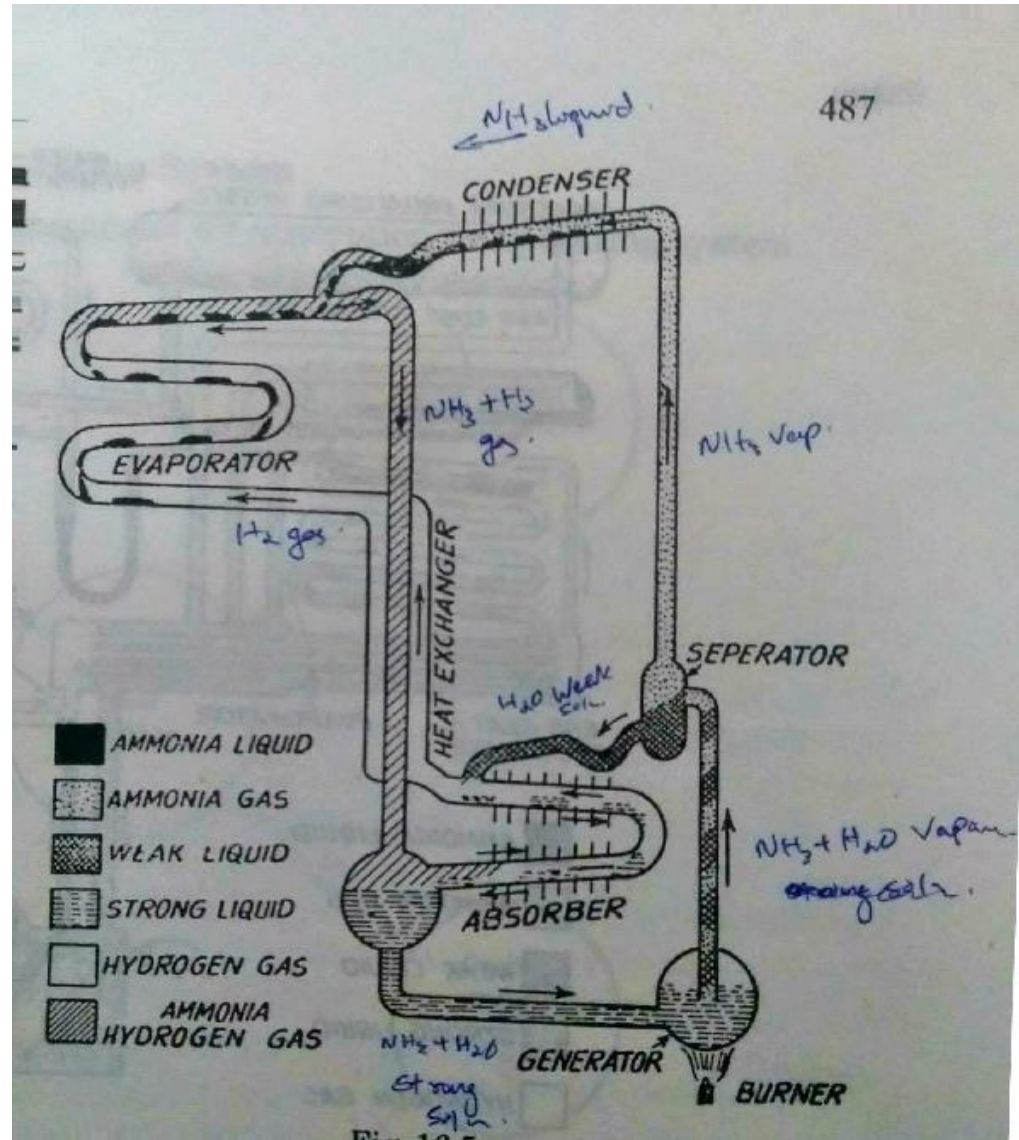 487
NH3 liquid.
CONDENSER
NH3 + H2
gs.
NH3 Vap.
EVAPORATOR
H2 gas.
HEAT EXCHANGER
SEPERATOR
H2O Week
soln
AMMONIA LIQUID
AMMONIA GAS
WEAK LIQUID
STRONG LIQUID
HYDROGEN GAS
AMMONIA
HYDROGEN GAS
NH3 + H2O Vapour
soln.
ABSORBER
NH3 + H2O
Strong
Soln.
GENERATOR
BURNER